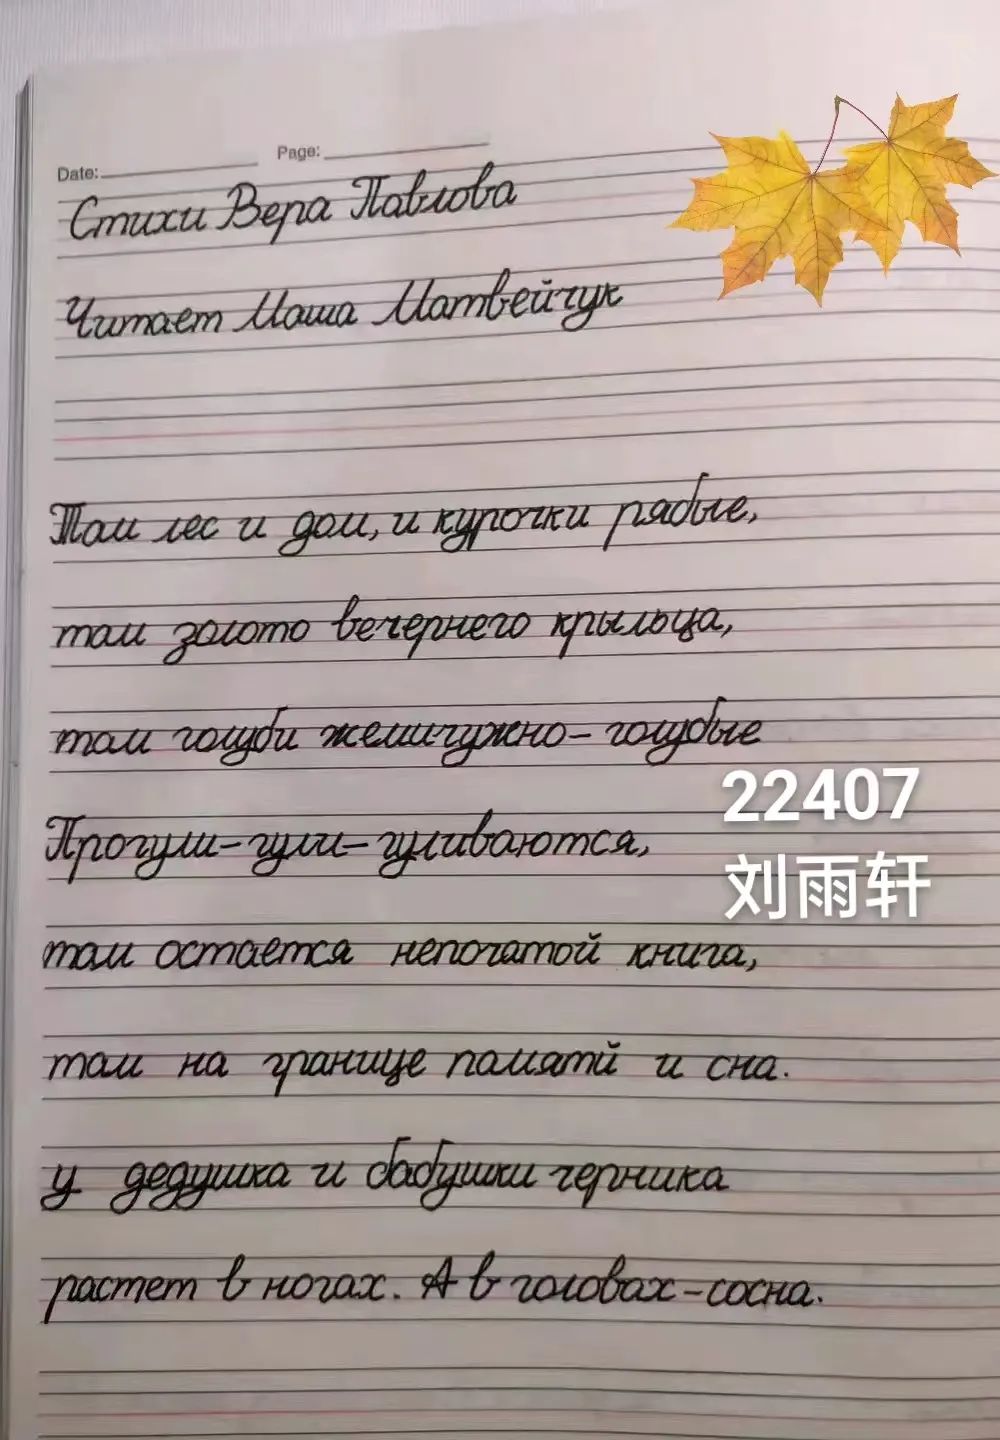 Date: Page:
Стихи Вера Павлова
Читает Маша Матвейчук
Там лес и дом, и курочки рябые,
там золото вечернего крыльца,
там голуби жемчужно-голубые
Прогули-гули-гуливаются,
22407
刘雨轩
там остается непочатой книга,
там на границе памяти и сна.
у дедушка и бабушки черника
растет в ногах. А в головах-сосна.